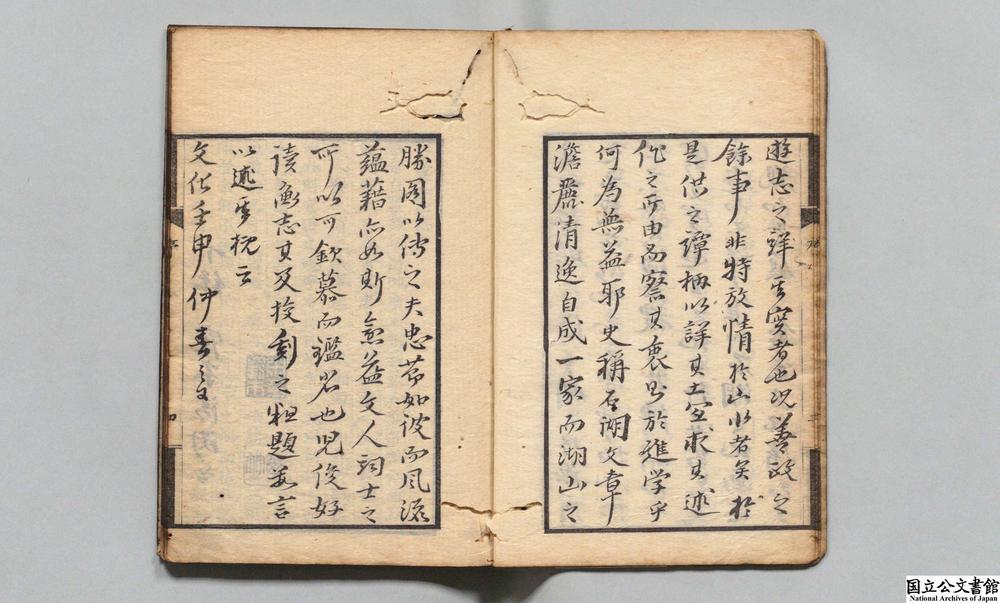 遊志之詳其実者也况善政之
餘事非特放情於山水者矣於
是供之譚柄以詳其土宜求其述
作之所由而察其衷則於進学乎
何為無益耶史稱石湖文章
瞻麗清逸自成一家而湖山之
勝図以傳之夫忠節如彼而風流
蘊藉亦如斯愈益文人詞士之
所以可欽慕而鑑若也児俊好
読勝志其及授刻之粗題数言
以述其概云
文化壬申仲春之吉
国立公文書館
National Archives of Japan